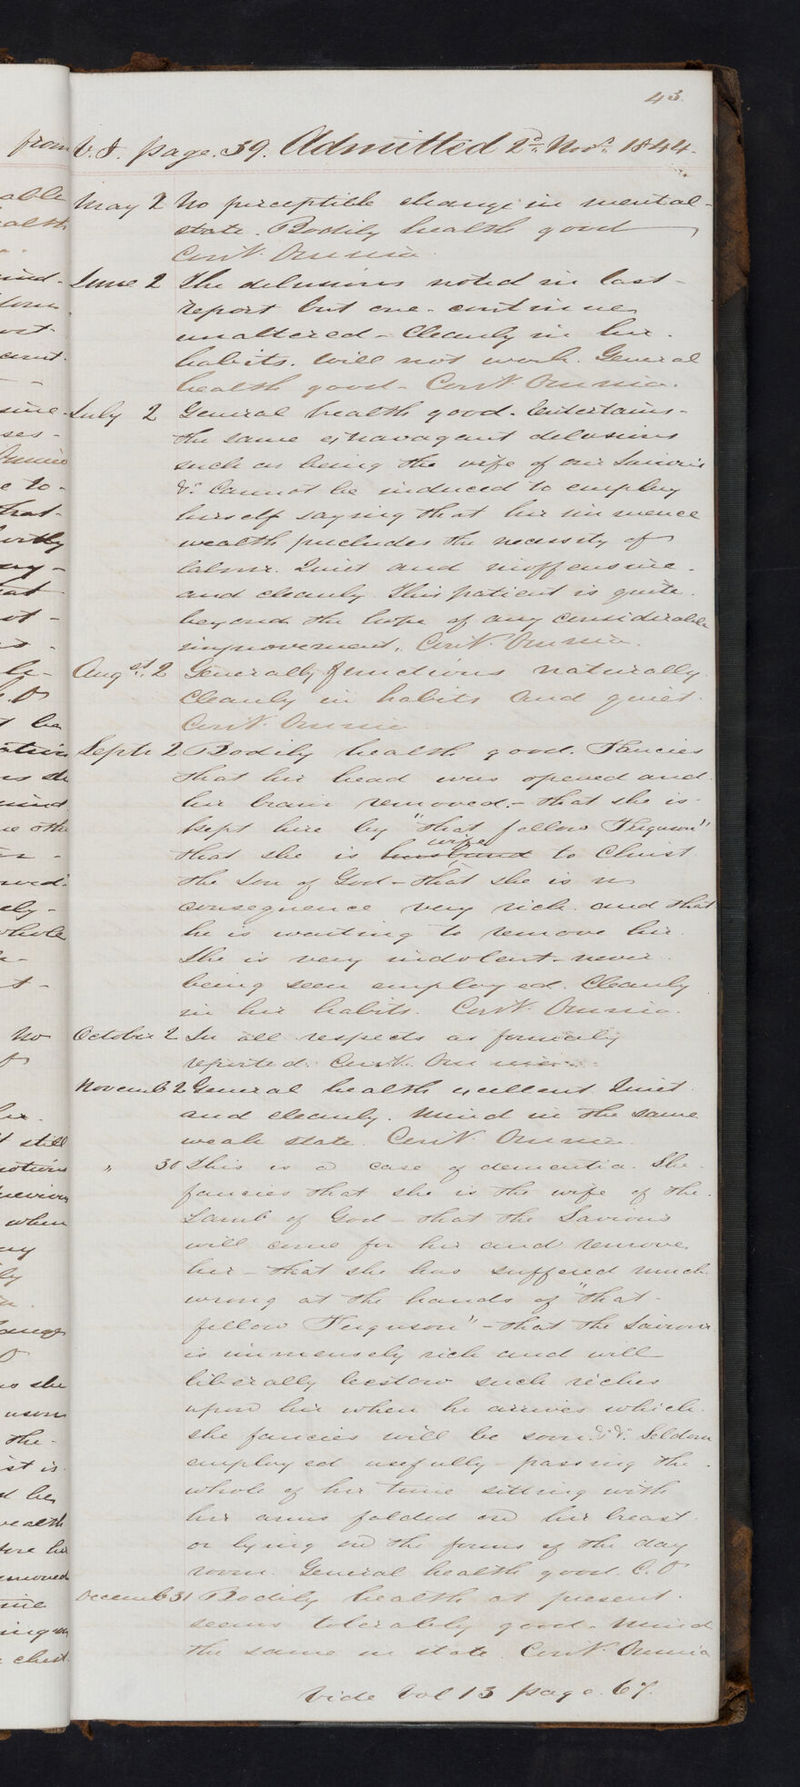 43.
from V. I. page. 39. Admitted 2d Novr. 1844.
May 2 No perceptible change in mental
state. Bodily health good
Cont. Omnia.
June 2 The delusions noted in last
report but one continues
unaltered - Cleanly in her
habits. Will not work. General
health good - Cont. Omnia.
July 2 General health good. Entertains
the same extravagant delusions
such as being the wife of our Saviour
&c. Cannot be induced to employ
herself saying that her immence
wealth precludes the necessity of
labour. Quiet and inoffensive.
and cleanly. This patient is quite
beyond the hope of any considerable
improvement. Cont. Omnia.
Augst. 2 Generally functions naturally.
Cleanly in habits and quiet.
Cont. Omnia
Septr 2 Bodily health good. Fancies
that her head was opened and
her brain removed. - that she is
kept here by "that fellow Ferguson"
wife
that she is husband to Christ
the Son of God - that she is in
consequence very rich and that
he is waiting to remove her.
She is very indolent - never
being seen employed. Cleanly
in her habits. Cont. Omnia.
October 2 In all respects as formerly
reported. Cont. Omnia.
Novemb 2 General health excellent. Quiet
and cleanly. Mind in the same
weak state. Cont. Omnia.
" 30 This is a case of dementia. She
fancies that she is the wife of the
Lamb of God - that the Saviour
will come for her and remove
her - that she has suffered much
wrong at the hands of "that
fellow Ferguson" - that the Saviour
is immensely rich and will
liberally bestow such riches
upon her when he arrives which
she fancies will be soon &c &c. Seldom
employed usefully - passing the
whole of her time sitting with
her arms folded on her breast
or lying on the forms of the day
room. General health good. C. O
Decemb 31 Bodily health at present
seems tolerably good. Mind
the same in state Cont. Omnia
Vide Vol 13 page. 67.